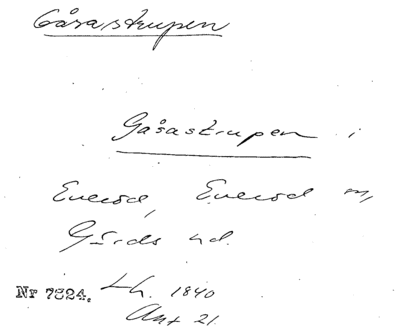 Gåsastrupen
Gåsastrupen i
Everöd, Everöd sn,
Gärds hd.
Nr 7824. Lh. 1840
Akt 21.